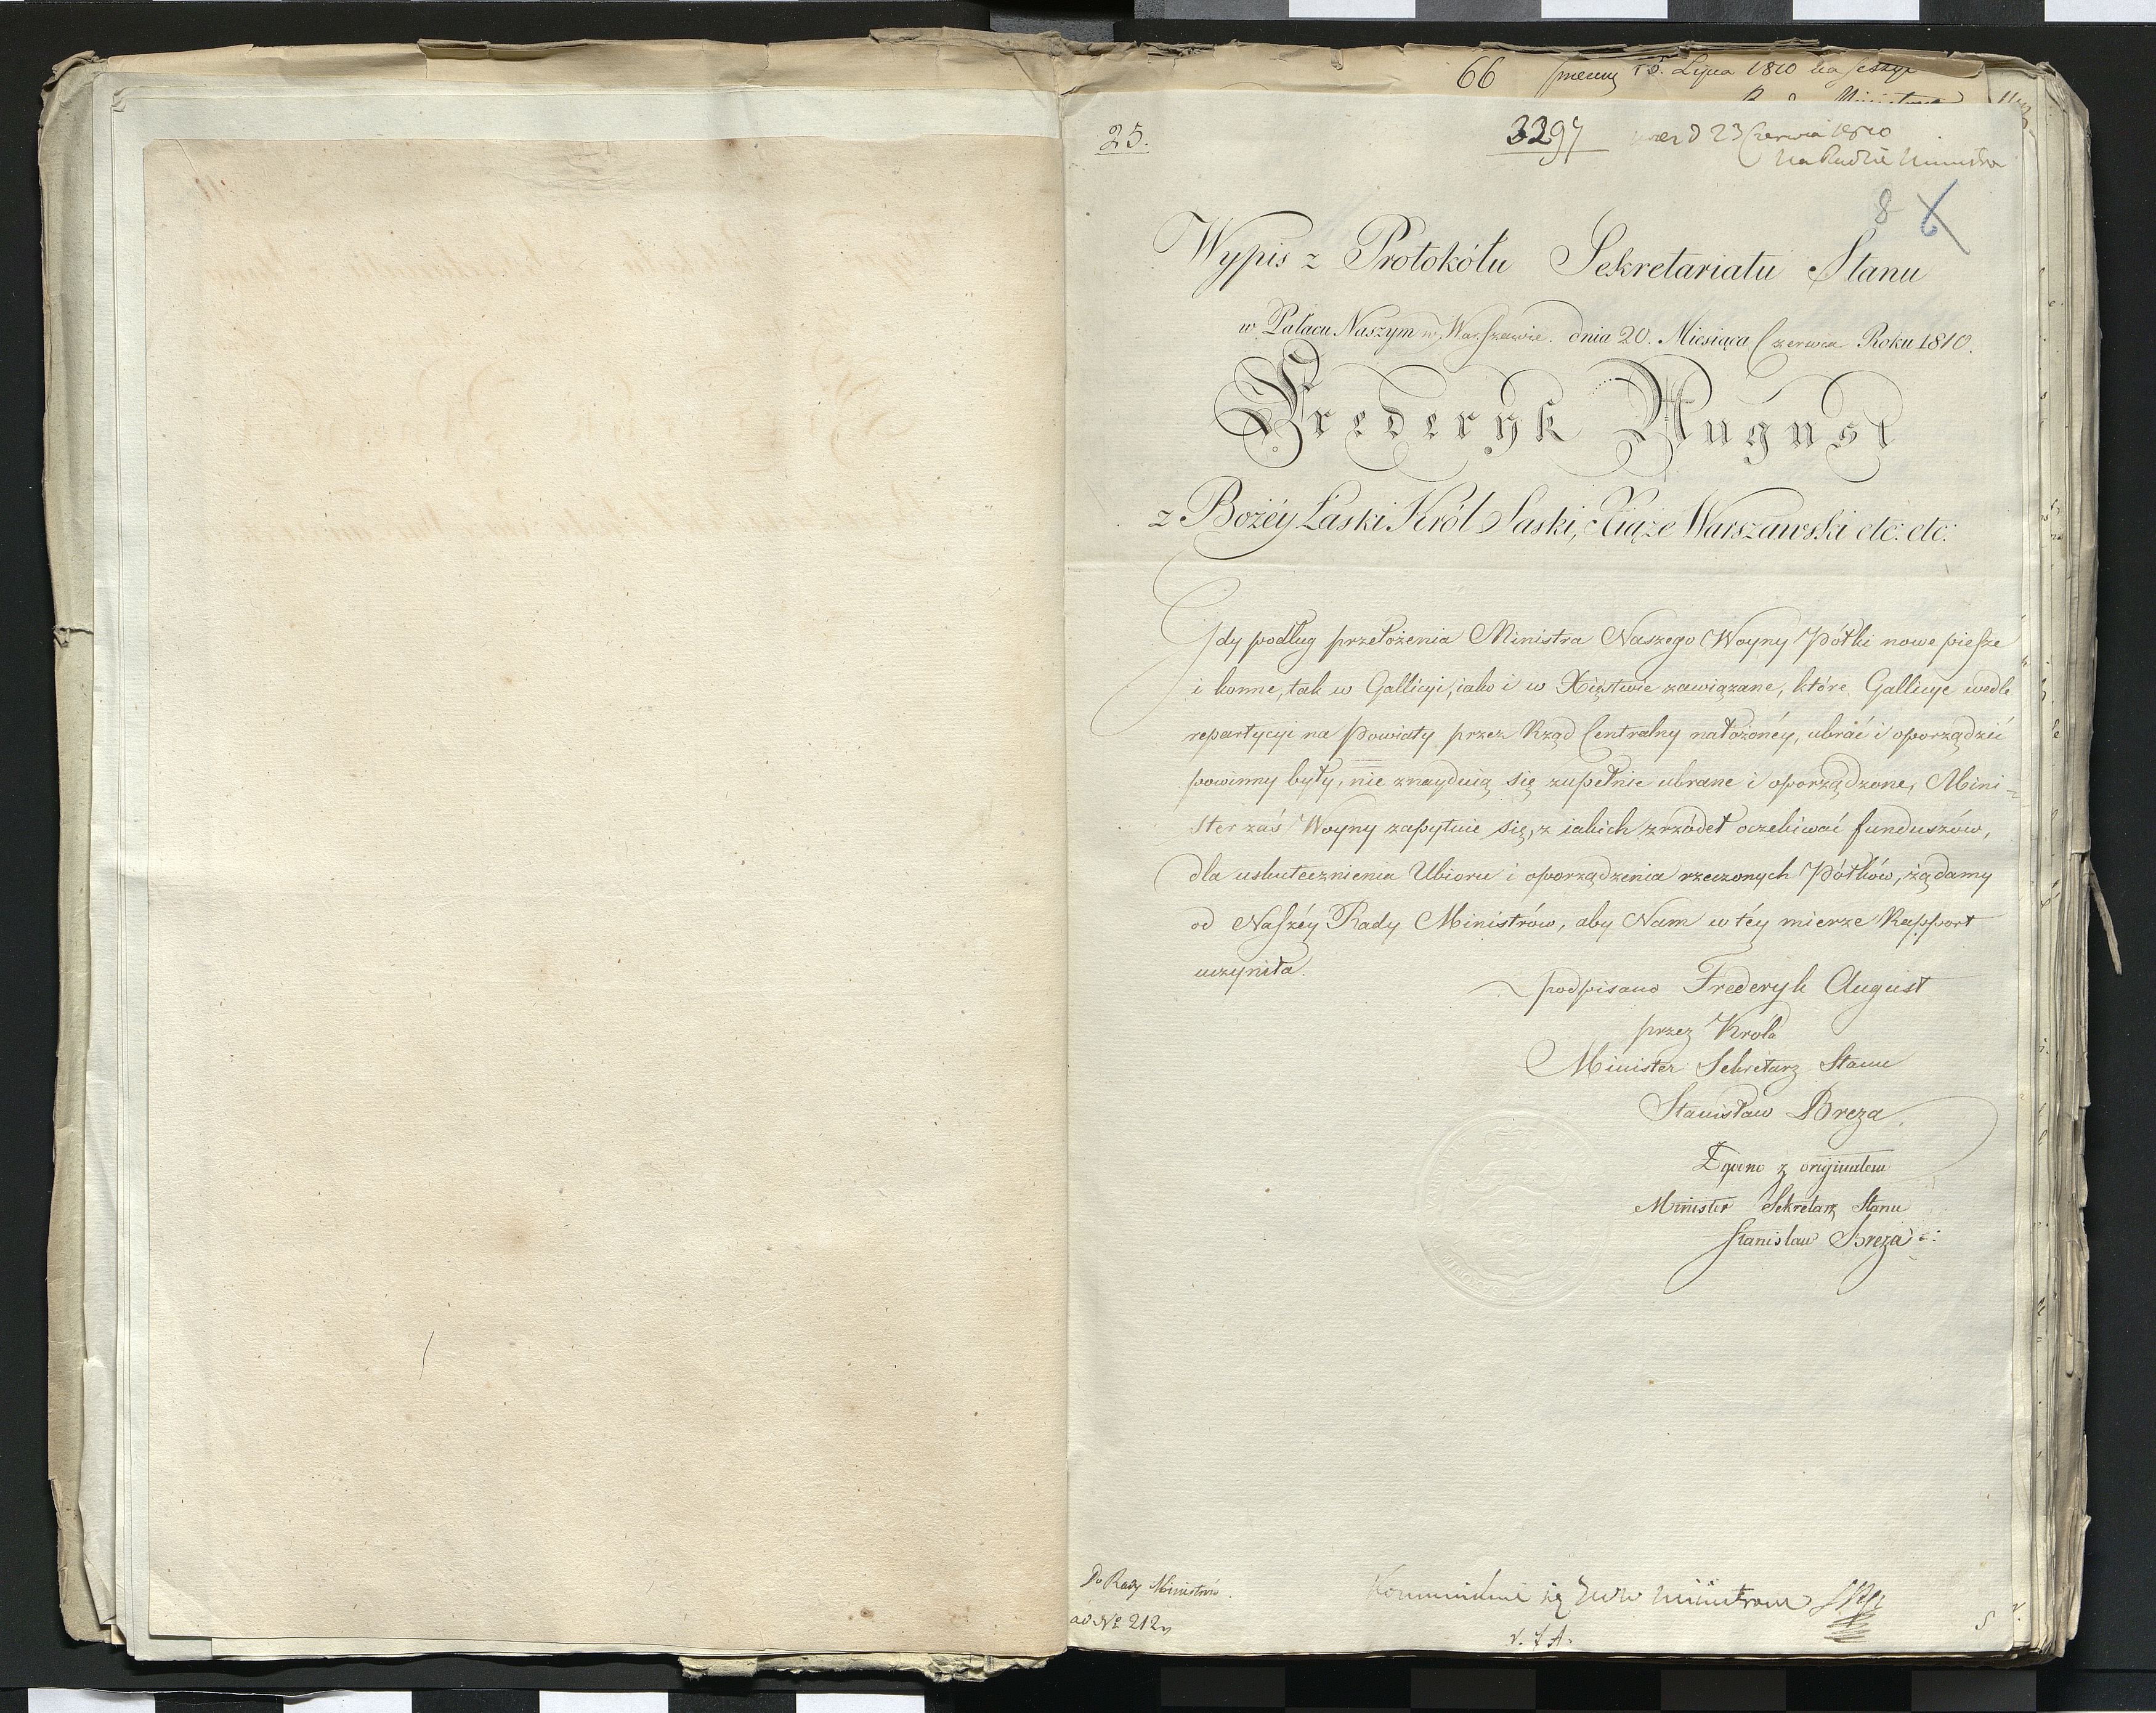 66 15. Lipca 1810 na
25.
3297 d 23 Czerwca 1810
na Radzie Ministrów
8 6
Wypis z Protokółu Sekretariatu Stanu
w Pałacu Naszym w Warszawie. dnia 20. Miesiąca Czerwca Roku 1810.
Frederyk August
z Bożéy Łaski Król Saski, Xiąże Warszawski etc: etc:
Gdy podług przełożenia Ministra Naszego Woyny Półki nowe piesze
i konne, tak w Gallicyi, iako i w Xięstwie zawiązane, które Gallicye wedle
repartycyi na Powiaty przez Rząd Centralny nałożonéy, ubrać i oporządzić
powinny były, nie znayduią się zupełnie ubrane i oporządzone, Mini=
ster zaś Woyny zapytuie się, z iakich zrzódeł oczekiwać funduszów,
dla uskutecznienia Ubioru i oporządzenia rzeczonych Półków, żądamy
od Naszéy Rady Ministrów, aby Nam w téy mierze Rapport
uczyniła.
podpisano Frederyk August
przez Króla
Minister Sekretarz Stanu
Stanisław Breza.
Zgodno z originałem
Minister Sekretarz Stanu
Stanisław Breza
Do Rady Ministrów.
ad No 212